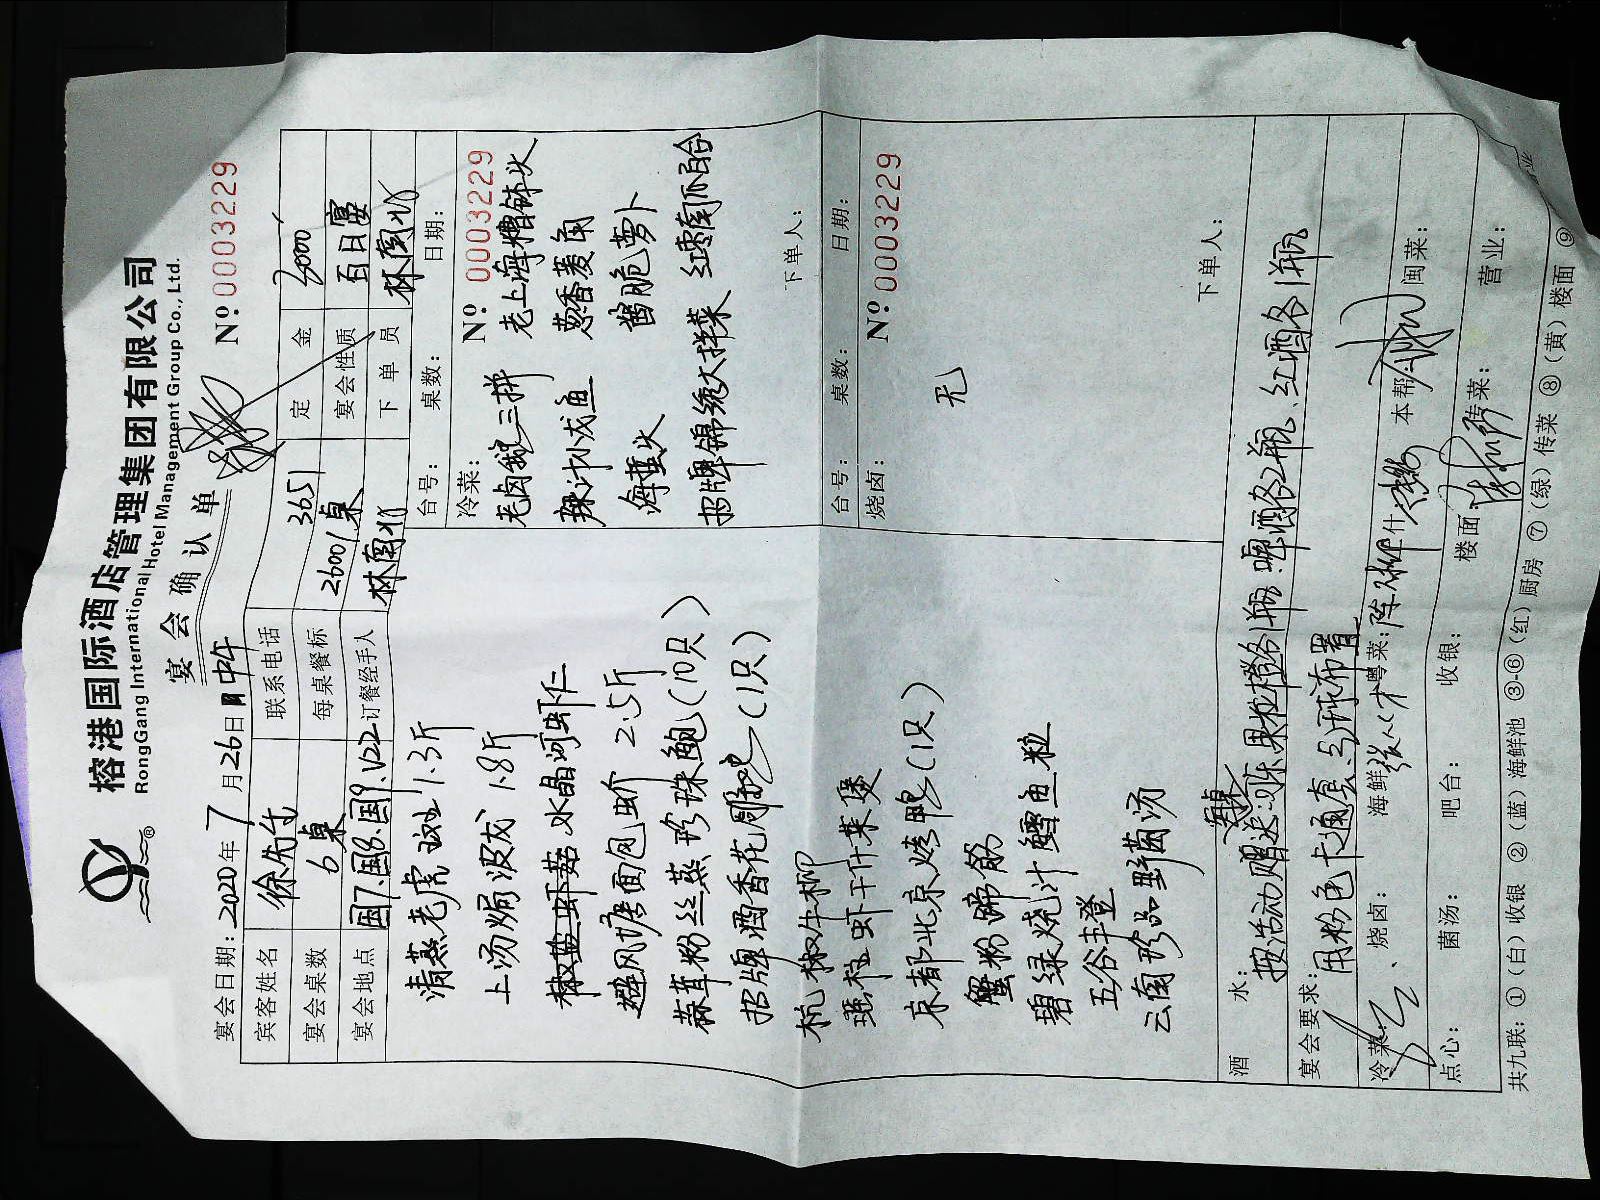 榕港国际酒店管理集团有限公司
RongGang International Hotel Management Group Co., Ltd.
宴会确认单
宴会日期：2020年7月26日 中午
Nº 0003229
宾客姓名 徐先生 联系电话 3651 定金 2000
宴会桌数 6桌 每桌餐标 2600/桌 宴会性质 百日宴
宴会地点 国7.国8.国9.V22 订餐经手人 林南 下单员 林南
清蒸老虎斑 1.3斤
上汤焗波龙 1.8斤
椒盐虾菇 水晶河虾仁
避风塘面包蟹 2.5斤
蒜茸粉丝蒸珍珠鲍(10只)
招牌酒香花雕鸡(1只)
杭椒牛柳
瑶柱虾干什菜煲
京都北京烤鸭(1只)
蟹粉蹄筋
碧绿烧汁鳕鱼粒
五谷丰登
云南珍品野菌汤
台号： 桌数： 日期：
冷菜： Nº 0003229
老卤鹅三拼 老上海糟钵头
辣汁小龙鱼 葱香菱角
海蜇头 酱脆萝卜
招牌锦绣大拌菜 红枣南瓜百合
下单人：
台号： 桌数： 日期：
烧卤： Nº 0003229
无
下单人：
酒水： 按活动赠送 果粒橙各1瓶 啤酒2瓶、红酒各1瓶
宴会要求： 用粉色卡通套、气球布置
冷菜： 烧卤： 海鲜 粤菜： 什 本帮 闽菜：
点心： 菌汤： 吧台： 收银： 楼面 传菜： 营业：
共九联：①（白）收银 ②（蓝）海鲜池 ③-⑥（红）厨房 ⑦（绿）传菜 ⑧（黄）楼面 ⑨ 业